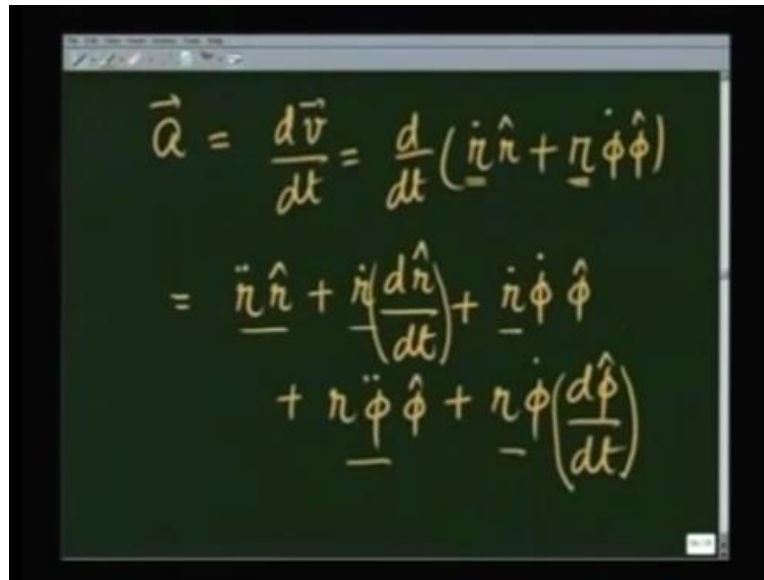 a⃗ = dv⃗/dt = d/dt (ṙ r̂ + r φ̇ φ̂)
= r̈ r̂ + ṙ (dr̂/dt) + ṙ φ̇ φ̂
+ r φ̈ φ̂ + r φ̇ (dφ̂/dt)